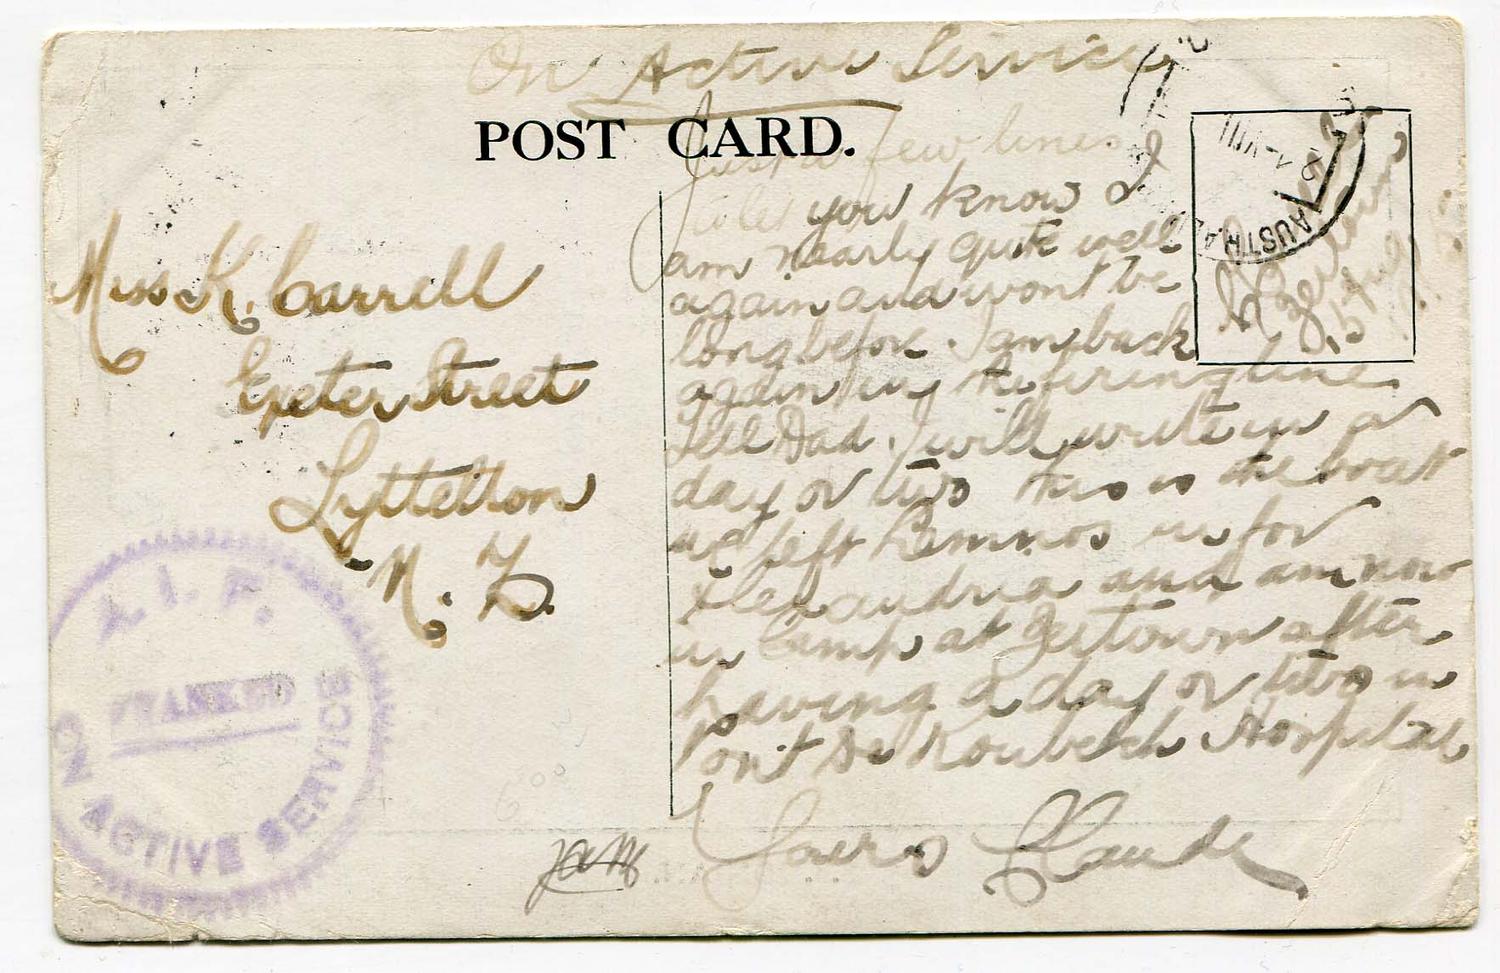 On Active Service
POST CARD.
Just a few lines
to let you know I
am nearly quite well
again and wont be
long before I am back
again in the firing line
Tell Dad I will write in a
day or two this is the boat
we left Lemnos in for
Alexandria and am now
in Camp at Zeitown after
having a day or two in
Pont De Koubeh Hospital
Yours Claude
Miss K. Carrell
Exeter Street
Lyttelton
N. Z.
A. I. F.
FRANKED
ON ACTIVE SERVICE
AUSTRAL
Zeitown